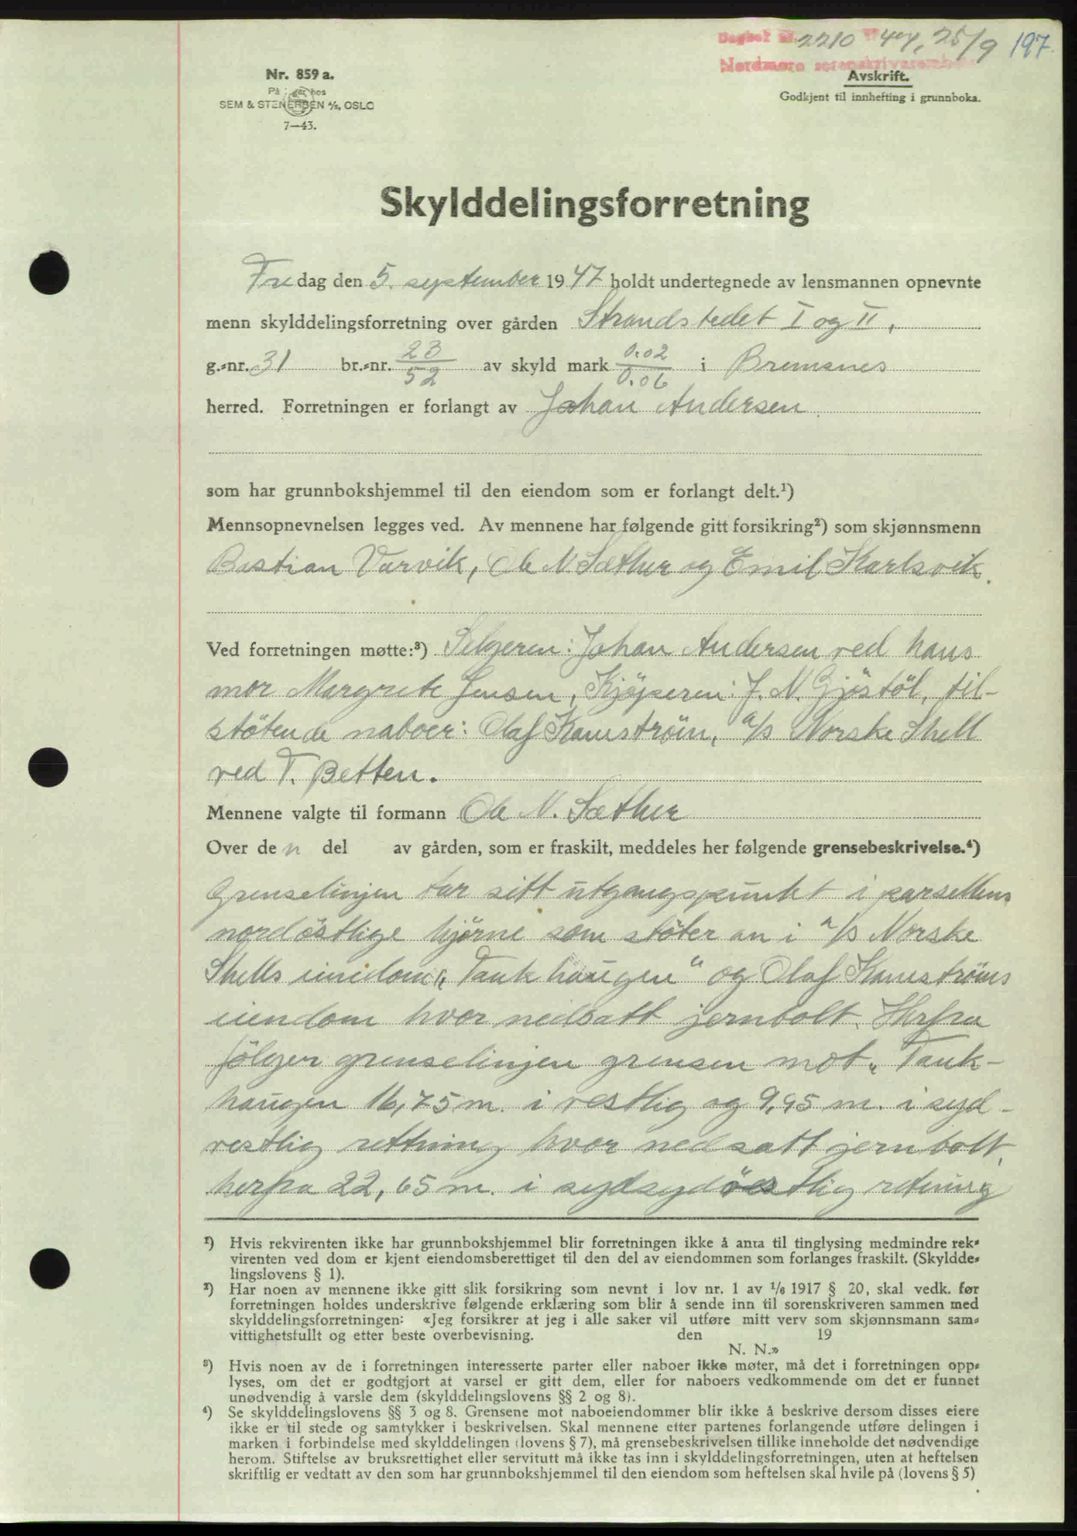 Dagbok nr. 2210 1947, 25/9 197
Nordmøre sorenskriverembete
Nr. 859 a.
På lager hos
SEM & STENERSEN A/S, OSLO
7—43.
Avskrift.
Godkjent til innhefting i grunnboka.
Skylddelingsforretning
Fredag den 5. september 1947 holdt undertegnede av lensmannen opnevnte
menn skylddelingsforretning over gården Strandstedet I og II,
g.-nr. 31 br.-nr. 23/52 av skyld mark 0.02/0.06 i Bremsnes
herred. Forretningen er forlangt av Johan Andersen
som har grunnbokshjemmel til den eiendom som er forlangt delt.¹)
Mennsopnevnelsen legges ved. Av mennene har følgende gitt forsikring²) som skjønnsmenn
Bastian Varvik, Ole N. Sæther og Emil Karlsvik.
Ved forretningen møtte:³) Selgeren: Johan Andersen ved hans
mor Margrete Jensen, Kjøperen: J. N. Gjøstøl, til-
støtende naboer: Olaf Kamstrøm, a/s Norske Shell
ved T. Betten.
Mennene valgte til formann Ole N. Sæther
Over den del av gården, som er fraskilt, meddeles her følgende grensebeskrivelse.⁴)
Grenselinjen tar sitt utgangspunkt i parsellens
nordöstlige hjørne som støter an i a/s Norske
Shells eiendom „Tankhaugen" og Olaf Kamstrøms
eiendom hvor nedsatt jernbolt. Herfra
følger grenselinjen grensen mot „Tank-
haugen 16,75 m. i vestlig og 9,95 m. i syd-
vestlig rettning hvor nedsatt jernbolt,
herfra 22,65 m. i sydsydöstlig retning
¹) Hvis rekvirenten ikke har grunnbokshjemmel blir forretningen ikke å anta til tinglysing medmindre rek-
virenten ved dom er kjent eiendomsberettiget til den del av eiendommen som forlanges fraskilt. (Skyldde-
lingslovens § 1).
²) Har noen av mennene ikke gitt slik forsikring som nevnt i lov nr. 1 av 1/6 1917 § 20, skal vedk. før
forretningen holdes underskrive følgende erklæring som blir å sende inn til sorenskriveren sammen med
skylddelingsforretningen: «Jeg forsikrer at jeg i alle saker vil utføre mitt verv som skjønnsmann sam-
vittighetsfullt og etter beste overbevisning. den 19
N. N.»
³) Hvis noen av de i forretningen interesserte parter eller naboer ikke møter, må det i forretningen opp-
lyses, om det er godtgjort at varsel er gitt dem, eller for naboers vedkommende om det er funnet
unødvendig å varsle dem (skylddelingslovens §§ 2 og 8).
⁴) Se skylddelingslovens §§ 3 og 8. Grensene mot naboeiendommer blir ikke å beskrive dersom disses eiere
ikke er til stede og samtykker i beskrivelsen. Skal mennene etter partenes forlangende utføre delingen i
marken i forbindelse med skylddelingen (lovens § 7), må grensebeskrivelsen tillike inneholde det nødvendige
herom. Stiftelse av bruksrettighet eller servitutt må ikke tas inn i skylddelingsforretningen, uten at heftelsen
skriftlig er vedtatt av den som har grunnbokshjemmel til den eiendom som heftelsen skal hvile på (lovens § 5)